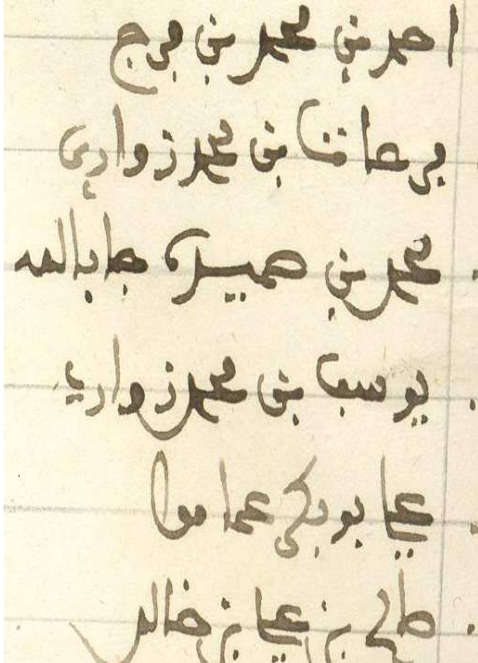 احمد بن محمد بن فرج
بن محمد زواري
محمد بن حميدة جاب الله
يوسف بن محمد زواري
علي بوبكر
صالح بن علي بن خالد